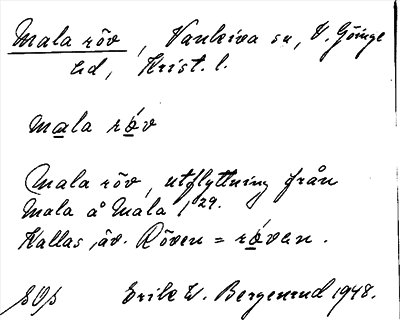 Mala röv, Vankiva sn, V. Göinge
hd, Krist. l.
mala röv
Mala röv, utflyttning från
Mala å Mala 1/29.
Kallas äv. Röven = röven.
Erik W. Bergenrud 1948.